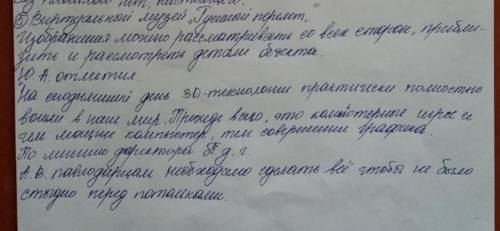 без прошлого нет, настоящего.
③ Виртуальной музей „Гусиный перелет„
Изображения можно рассматривать со всех сторон, прибли-
зить и рассмотреть детали объекта.
Ю. А. отметил.
"На сегодняшний день 3D-технологии практически полностью
вошли в наш мир. Прежде всего, это компютерные игры и
чем мощнее компьютер, тем совершеннее графика.
По мнению директора П.д.г.
А. В. павлодарцам необходимо сделать всё чтобы не было
стыдно перед потомками.